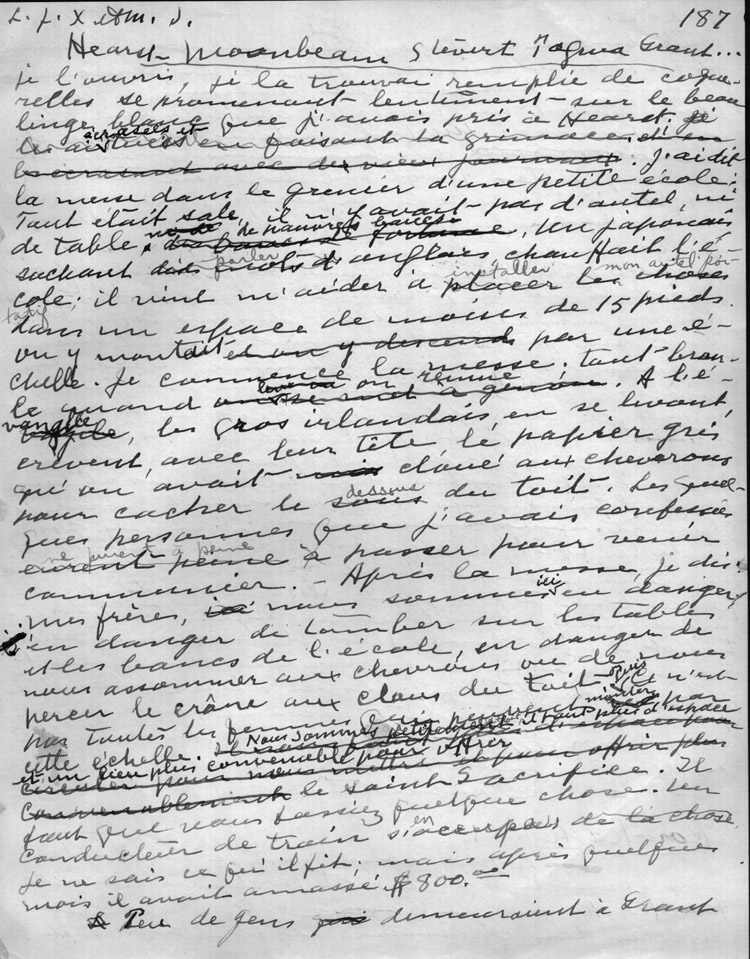 L. J. X et M. J. 187
Hearst Moonbeam Stévert Ogwa Grant...
je l'ouvris, je la trouvai remplie de coque-
relles se promenant lentement sur le beau
linge blanc que j'avais pris à Hearst. Je
écrasées et
les en faisant la grimace
avec de vieux journaux. J'ai dit
la messe dans le grenier d'une petite école;
Tout était sale, il n'y avait pas d'autel, ni
de table, de pauvres bancs. Un japonais,
parler
sachant dix mots d'anglais chauffait l'é-
installer mon autel por-
cole; il vint m'aider à placer les choses
tatif
dans un espace de moins de 15 pieds.
on y montait et on y descend par une é-
chelle. Je commence la messe; tout bran-
le quand on se met à genou. A l'é-
on remue
vangile, les gros irlandais, en se levant,
crèvent, avec leur tête le papier gris
qu'on avait cloué aux chevrons
dessous
pour cacher le sous du toit. Les quel-
ques personnes que j'avais confessées
ne purent à peine
eurent peine à passer pour venir
communier. - Après la messe, je dis:
ici
mes frères, nous sommes en danger,
en danger de tomber sur les tables
et les bancs de l'école, en danger de
nous assommer aux chevrons ou de nous
puis
percer le crâne aux clous du toit. Ce n'est
monter
pas toutes les femmes qui peuvent par
cette échelle. Nous sommes il faut plus d'espace
et un lieu plus convenable pour offrir
circuler pour nous mettre et pour offrir plus
convenablement le Saint Sacrifice. Il
faut que vous fassiez quelque chose. Un
en
conducteur de train s'occupa de la chose.
Je ne sais ce qu'il fit; mais après quelques
mois il avait amassé $800.00
Peu de gens qui demeuraient à Grant